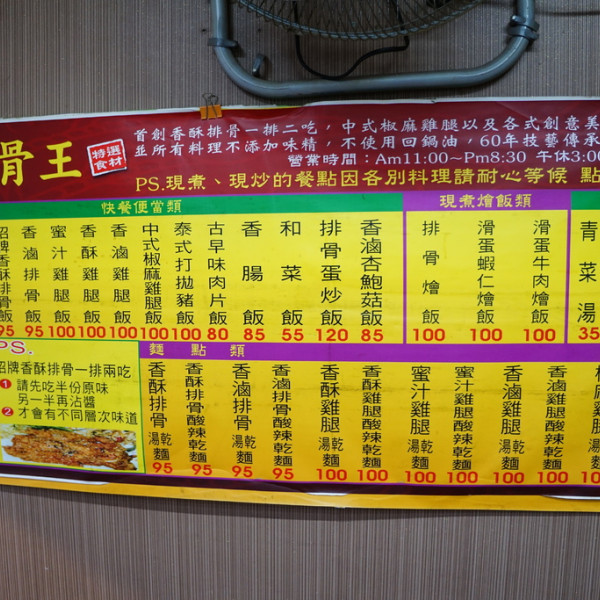 骨王
特選
食材
首創香酥排骨一排二吃，中式椒麻雞腿以及各式創意美
並所有料理不添加味精，不使用回鍋油，60年技藝傳承
營業時間：Am11:00～Pm8:30 午休3:00
PS.現煮、現炒的餐點因各別料理請耐心等候 點
快餐便當類
招牌香酥排骨飯 95
香滷排骨飯 95
蜜汁雞腿飯 100
香酥雞腿飯 100
香滷雞腿飯 100
中式椒麻雞腿飯 100
泰式打拋豬飯 100
古早味肉片飯 80
香腸飯 85
和菜飯 55
排骨蛋炒飯 120
香滷杏鮑菇飯 85
現煮燴飯類
排骨燴飯 100
滑蛋蝦仁燴飯 100
滑蛋牛肉燴飯 100
青菜湯 35
PS.
招牌香酥排骨一排兩吃
1 請先吃半份原味
另一半再沾醬
2 才會有不同層次味道
麵點類
香酥排骨湯乾麵 95
香酥排骨酸辣乾麵 95
香滷排骨湯乾麵 95
香滷排骨酸辣乾麵 95
香酥雞腿湯乾麵 100
香酥雞腿酸辣乾麵 100
蜜汁雞腿湯乾麵 100
蜜汁雞腿酸辣乾麵 100
香滷雞腿湯乾麵 100
香滷雞腿酸辣乾麵 100